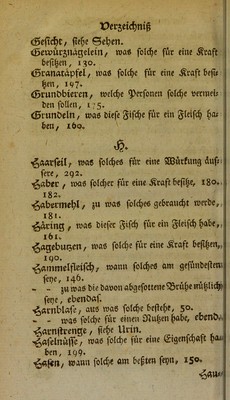 Verzeichniß
Gesicht, siehe Sehen.
Gewürznägelein, was solche für eine Kraft
besitzen, 130.
Granatäpfel, was solche für eine Kraft besi-
tzen, 197.
Grundbieren, welche Personen solche vermei-
den sollen, 175.
Grundeln, was diese Fische für ein Fleisch ha-
ben, 160.
H.
Haarseil, was solches für eine Würkung äus-
sere, 292.
Haber, was solcher für eine Kraft besitze, 180.
182.
Habermehl, zu was solches gebraucht werde,
181.
Häring, was dieser Fisch für ein Fleisch habe,
161.
Hagebutzen, was solche für eine Kraft besitzen,
190.
Hammelfleisch, wann solches am gesündesten
seye, 146.
- - zu was die davon abgesottene Brühe nützlich
seye, ebendas.
Harnblase, aus was solche bestehe, 50.
- - was solche für einen Nutzen habe, ebend.
Harnstrenge, siehe Urin.
Haselnüsse, was solche für eine Eigenschaft ha-
ben, 199.
Hasen, wann solche am besten seyn, 150.